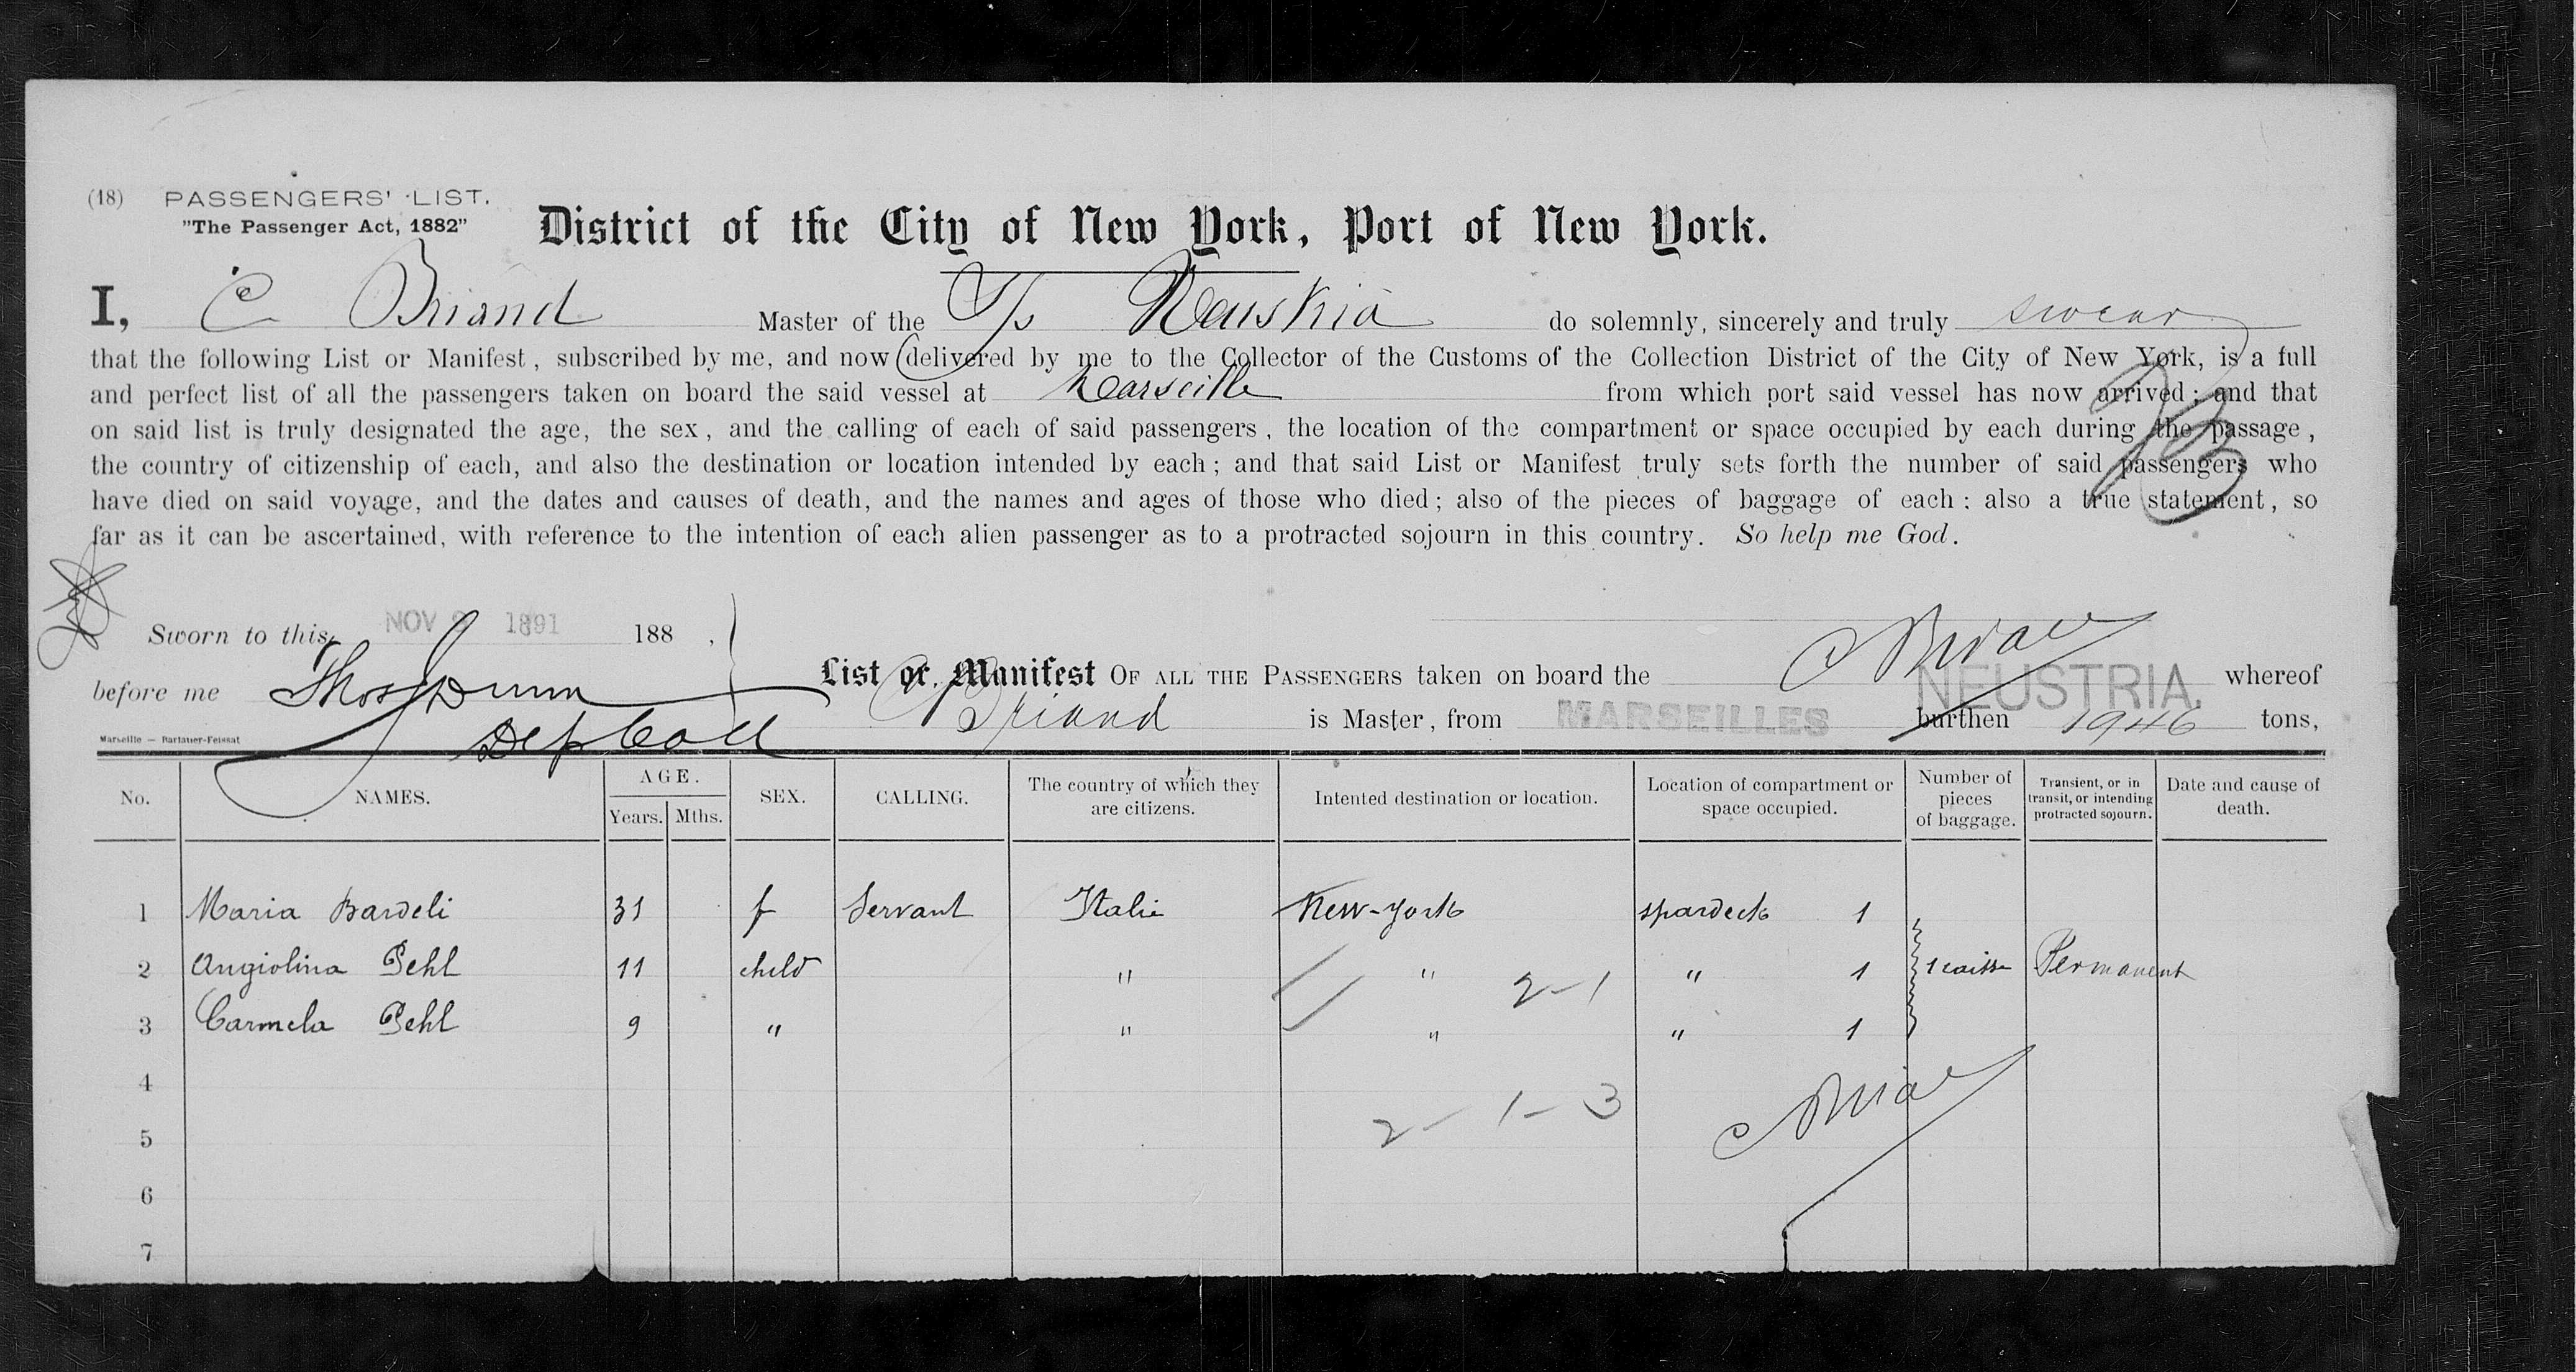 (18) PASSENGERS' LIST.
"The Passenger Act, 1882"
District of the City of New York, Port of New York.
I, C Briand Master of the S/s Neustria do solemnly, sincerely and truly swear
that the following List or Manifest, subscribed by me, and now delivered by me to the Collector of the Customs of the Collection District of the City of New York, is a full
and perfect list of all the passengers taken on board the said vessel at Marseille from which port said vessel has now arrived; and that
on said list is truly designated the age, the sex, and the calling of each of said passengers, the location of the compartment or space occupied by each during the passage,
the country of citizenship of each, and also the destination or location intended by each; and that said List or Manifest truly sets forth the number of said passengers who
have died on said voyage, and the dates and causes of death, and the names and ages of those who died; also of the pieces of baggage of each: also a true statement, so
far as it can be ascertained, with reference to the intention of each alien passenger as to a protracted sojourn in this country. So help me God.
Sworn to this NOV 1891 188 ,
before me Thos Dunn
Dep Coll
C Briand
List or Manifest OF ALL THE PASSENGERS taken on board the NEUSTRIA. whereof
C Briand is Master, from MARSEILLES burthen 1946 tons,
Marseille — Bartauer-Feissat
No. NAMES. AGE. Years. Mths. SEX. CALLING. The country of which they are citizens. Intented destination or location. Location of compartment or space occupied. Number of pieces of baggage. Transient, or in transit, or intending protracted sojourn. Date and cause of death.
1 Maria Bardeli 31 f Servant Italie New-york spardeck 1
2 Angiolina Pehl 11 child " " 2-1 " 1 1 caisse Permanent
3 Carmela Pehl 9 " " " " 1
4
2 - 1 - 3
5
6
7